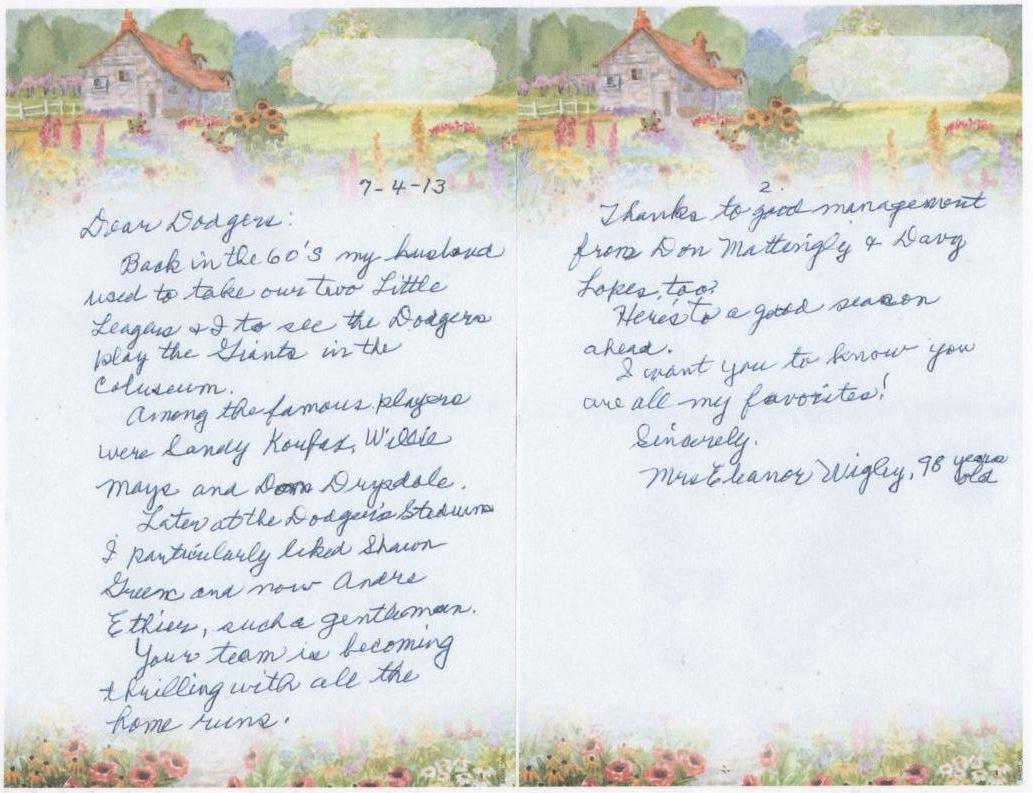 7-4-13
Dear Dodgers:
Back in the 60's my husband
used to take our two Little
Leagers & I to see the Dodgers
play the Giants in the
Coluseum.
Among the famous players
were Sandy Koufax, Willie
Mays and Don Drysdale.
Later at the Dodger's Stadium
I particularly liked Shawn
Green and now Andre
Ethier, such a gentleman.
Your team is becoming
thrilling with all the
home runs.
2.
Thanks to good management
from Don Mattingly & Davy
Lopes, too?
Here's to a good season
ahead.
I want you to know you
are all my favorites!
Sincerely.
Mrs Eleanor Wigley, 98 years
old